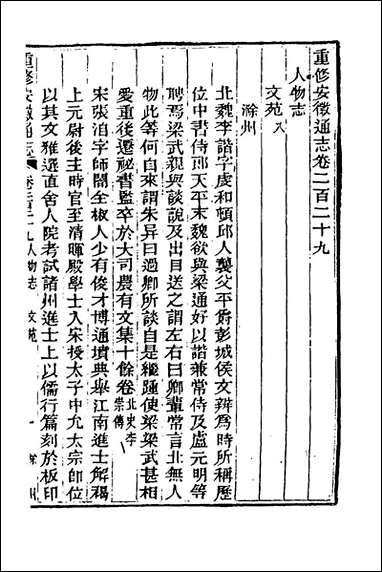 重修安徽通志卷二百二十九
人物志
文苑八
滁州
北魏李諧字虔和頓邱人襲父平爵彭城侯文辨為時所稱歷
位中書侍郎天平末魏欲與梁通好以諧兼常侍及盧元明等
聘焉梁武親與談說及出目送之謂左右曰卿輩常言北無人
物此等何自來謂朱异曰過卿所談自是繼踵使梁梁武甚相
愛重後遷祕書監卒於大司農有文集十餘卷北史李崇傳
宋張洎字師闇全椒人少有俊才博通墳典舉江南進士解褐
上元尉後主時官至清暉殿學士入宋授太子中允太宗即位
以其文雅選直舍人院考試諸州進士上以儒行篇刻於板印
重修安徽通志 卷二百二十九 人物志 文苑 一 滁州